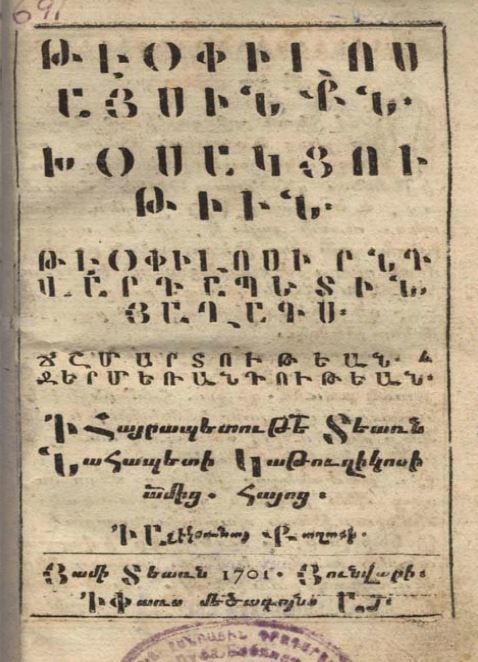 691
ԹԷՕՓԻԼՈՍ
ԱՅՍԻՆՔՆ.
ԽՕՍԱԿՑՈՒ
ԹԻՒՆ.
ԹԷՕՓԻԼՈՍԻ ԸՆԴ
ՎԱՐԴԱՊԵՏԻՆ,
ՅԱՂԱԳՍ.
ՃՇՄԱՐՏՈՒԹԵԱՆ. և
ՋԵՐՄԵՌԱՆԴՈՒԹԵԱՆ.
Ի ՀայրապետուԹէ Տեառն
Նահապետի Կաթուղիկոսի
ամից. Հայոց.
Յամի Տեառն 1701. Յունվարի.
Ի Փառս մեծագոյնս Այ.